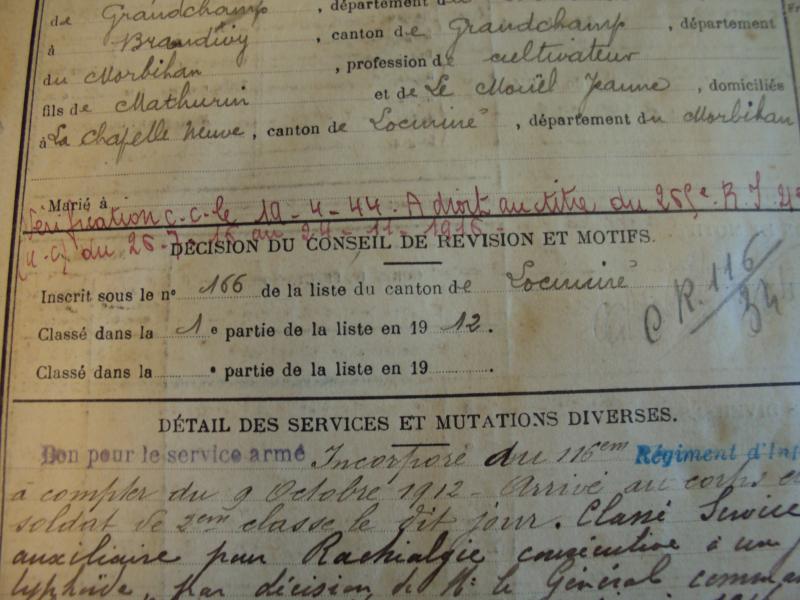 de Grandchamp, département d
à Brandivy, canton de Grandchamp, département
du Morbihan, profession de cultivateur
fils de Mathurin et de Le Moüel Jeanne, domiciliés
à La Chapelle Neuve, canton de Locminé, département du Morbihan
Marié à
Vérification c.c. le 19-4-44. A droit au titre du 265e R.I.
du 24-11-1916
DÉCISION DU CONSEIL DE REVISION ET MOTIFS.
Inscrit sous le no 166 de la liste du canton de Locminé
C R. 116/34
Classé dans la 1e partie de la liste en 1912.
Classé dans la e partie de la liste en 19 .
DÉTAIL DES SERVICES ET MUTATIONS DIVERSES.
Bon pour le service armé Incorporé du 116em Régiment d'Inf
à compter du 9 Octobre 1912 - Arrivé au corps et
soldat de 2em classe le dit jour. Classé Service
auxiliaire pour Rachialgie consécutive à un
typhoïde, par décision de Mr le Général comma